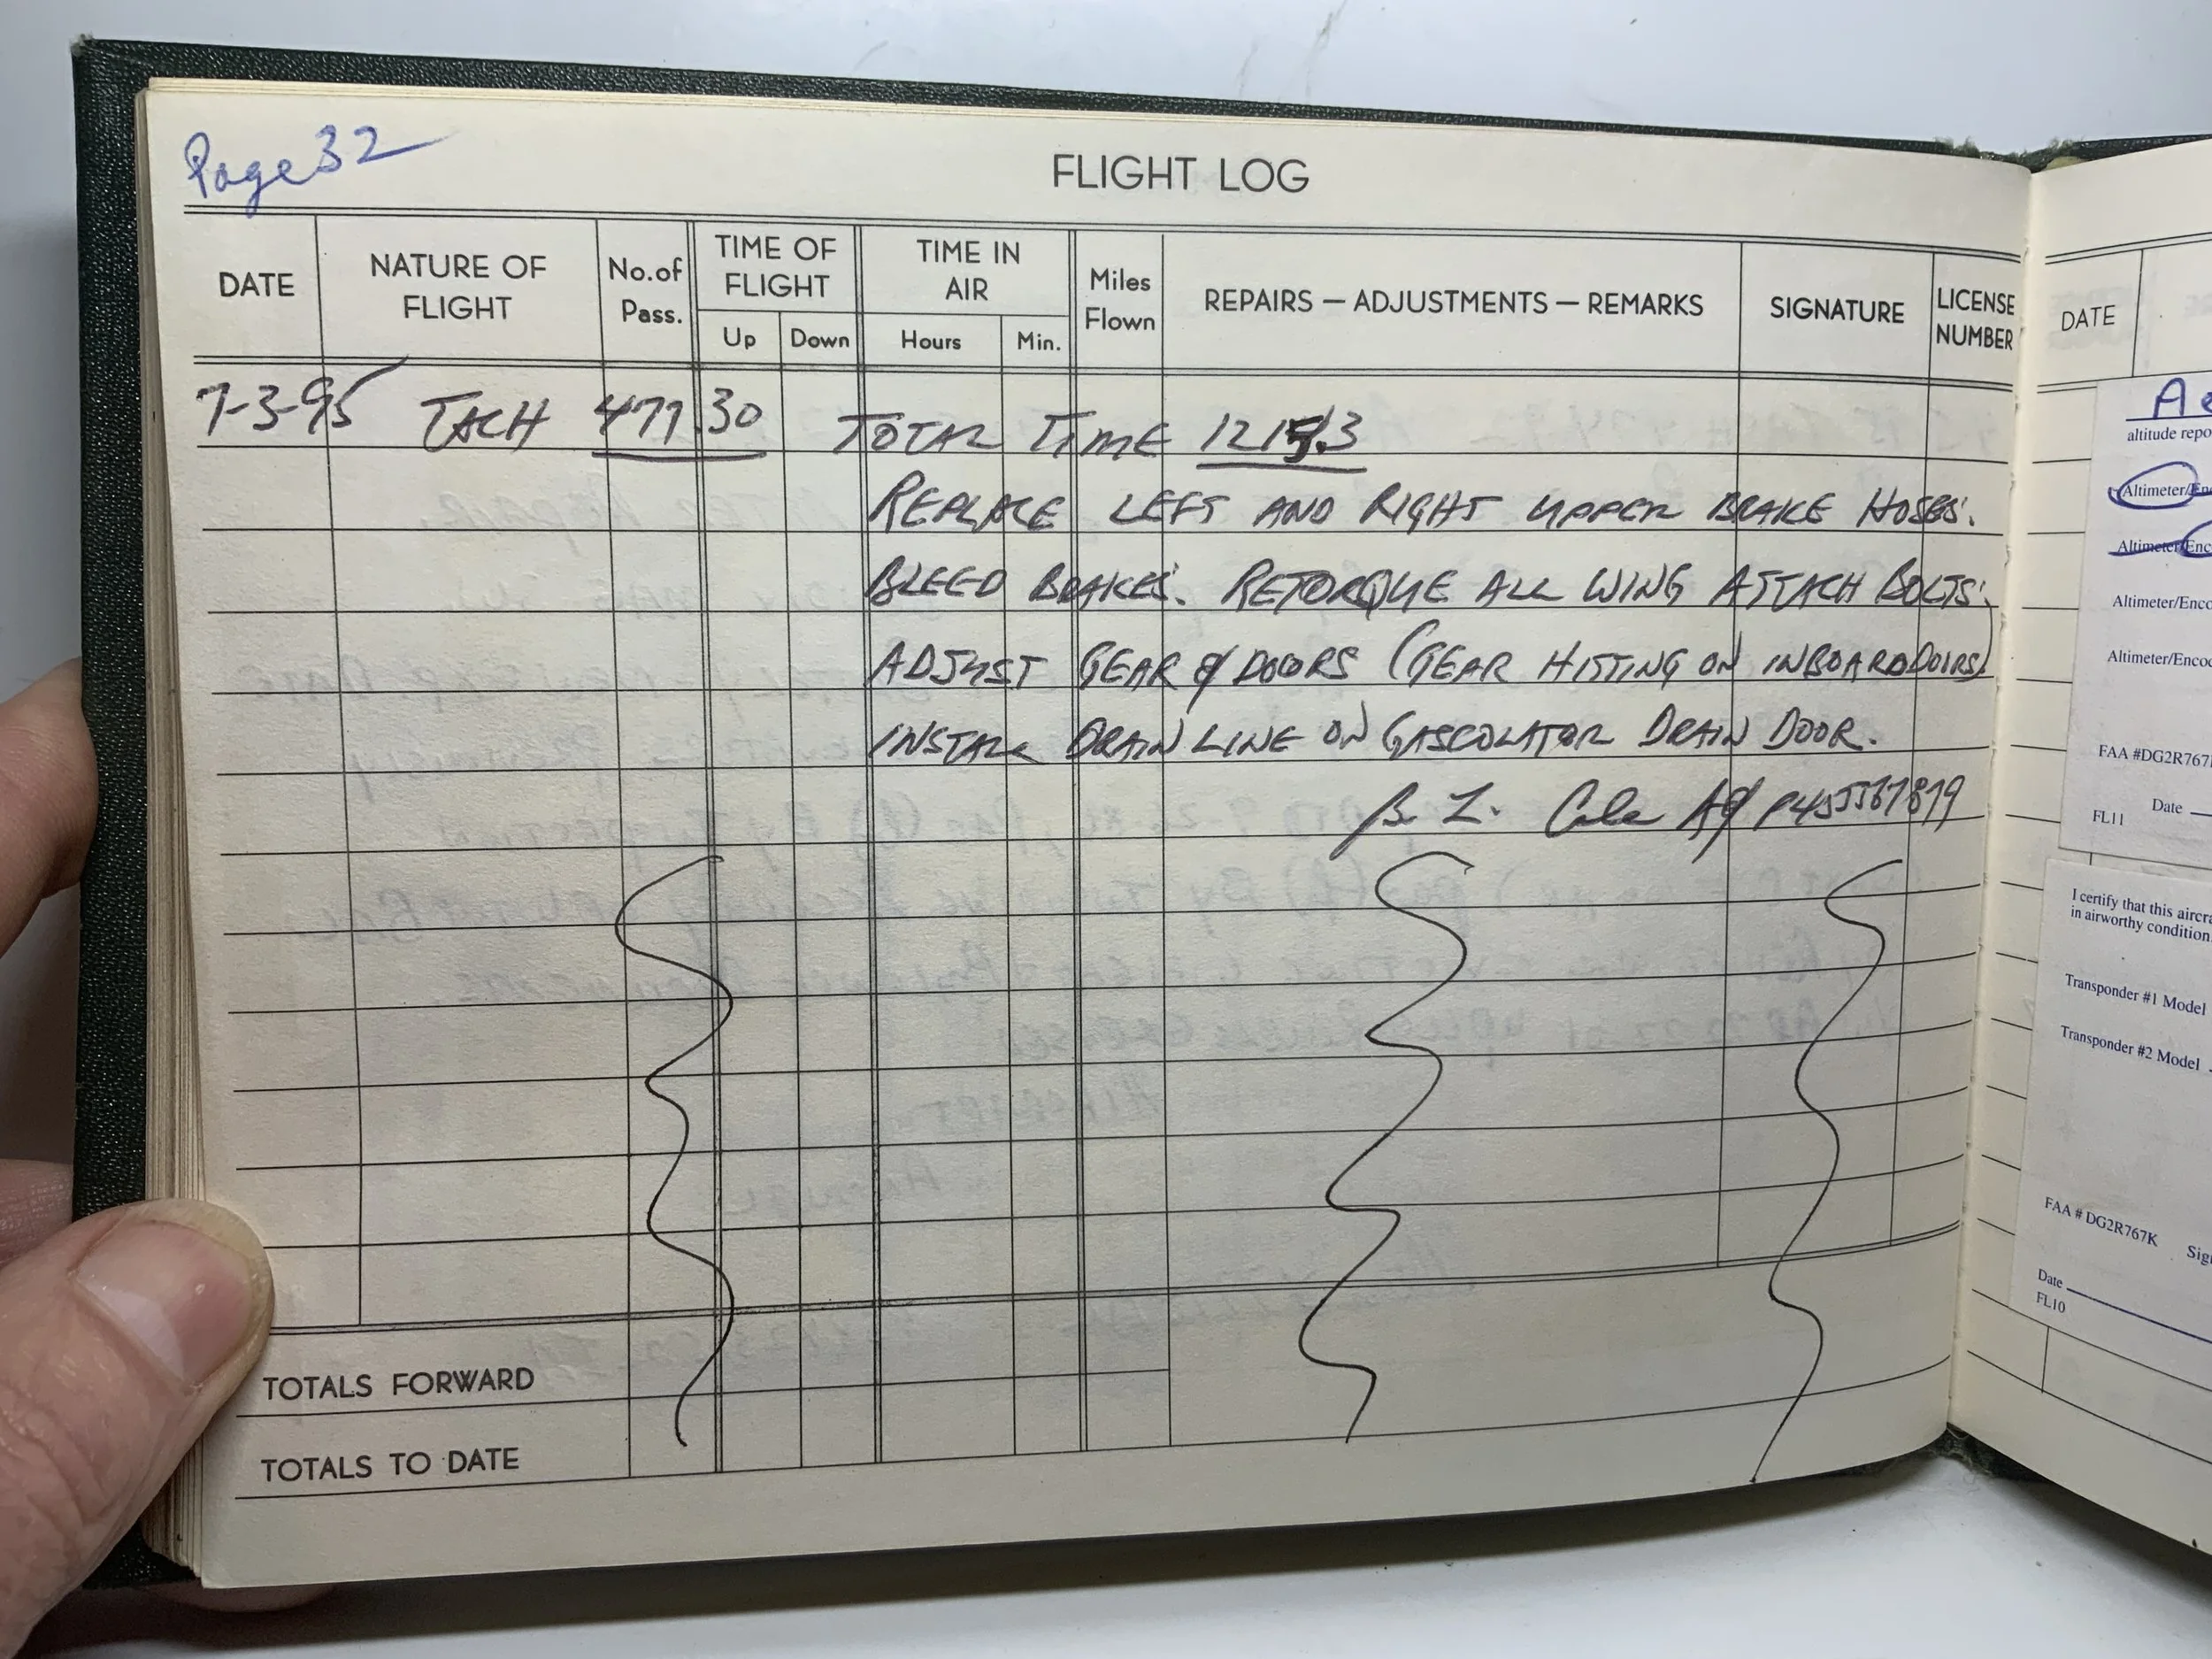 Page 32
FLIGHT LOG
DATE NATURE OF FLIGHT No. of Pass. TIME OF FLIGHT Up Down TIME IN AIR Hours Min. Miles Flown REPAIRS — ADJUSTMENTS — REMARKS SIGNATURE LICENSE NUMBER
7-3-95 TACH 477.30 TOTAL TIME
REPLACE LEFT AND RIGHT UPPER BRAKE HOSES.
BLEED BRAKES. RETORQUE ALL WING ATTACH BOLTS.
ADJUST GEAR & DOORS (GEAR HITTING ON INBOARD DOORS)
INSTALL DRAIN LINE ON GASCOLATOR DRAIN DOOR.
TOTALS FORWARD
TOTALS TO DATE
DATE
altitude repo
Altimeter/Enc
Altimeter/Enc
Altimeter/Enco
Altimeter/Encod
FAA #DG2R767
Date
FL11
I certify that this aircra
in airworthy condition
Transponder #1 Model
Transponder #2 Model
FAA # DG2R767K Sig
Date
FL10